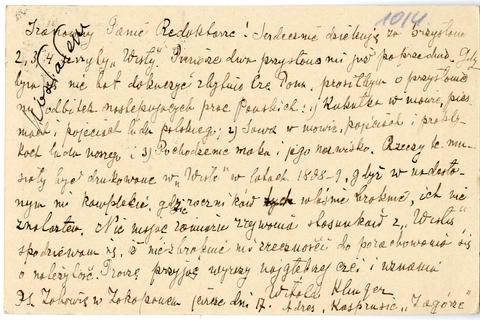 1014
Szanowny Panie Redaktorze! Serdecznie dziękuję za przysłane
2, 3 i 4 zeszyty „Wisły". Pierwsze dwa przysłano mi już poprzednio. Gdy
bym się nie bał dokuczyć zbytnio Cz. Panu, prosiłbym o przysłanie
mi odbitek następujących prac Pańskich: 1) Kukułka w mowie, pieś
niach, pojęciach ludu polskiego; 2) Sowa w mowie, pojęciach i prakty
kach ludu naszego i 3) Pochodzenie maku i jego nazwisko. Rzeczy te mu
siały być drukowane w „Wiśle" w latach 1885-9, gdyż w nadesła
nym mi komplecie, gdzie roczników tych właśnie braknie, ich nie
znalazłem. Nie mając zamiaru zrywania stosunków z „Wisłą"
spodziewam się, iż nie zbraknie mi zręczności do porachowania się
o należytość. Proszę przyjąć wyrazy najgłębszej czci i uznania
Witold Klinger
PS. Zabawię w Zakopanem jeszcze dni 17. Adres, Kasprusie, „Zagórze"